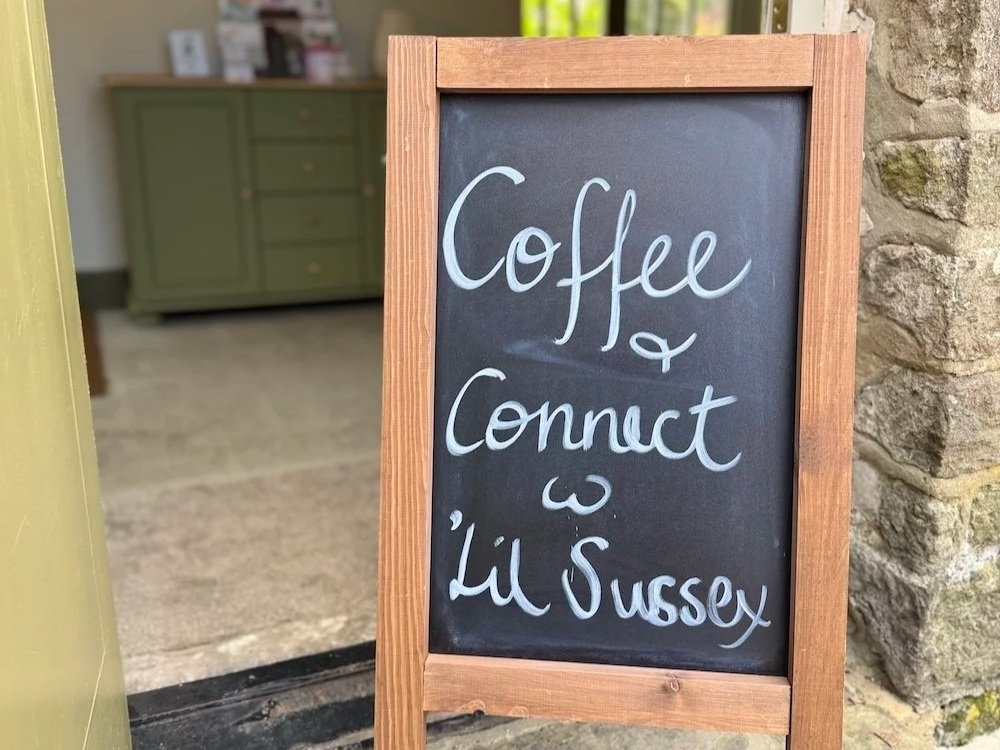 Coffee
&
Connect
w
'Lil Sussex